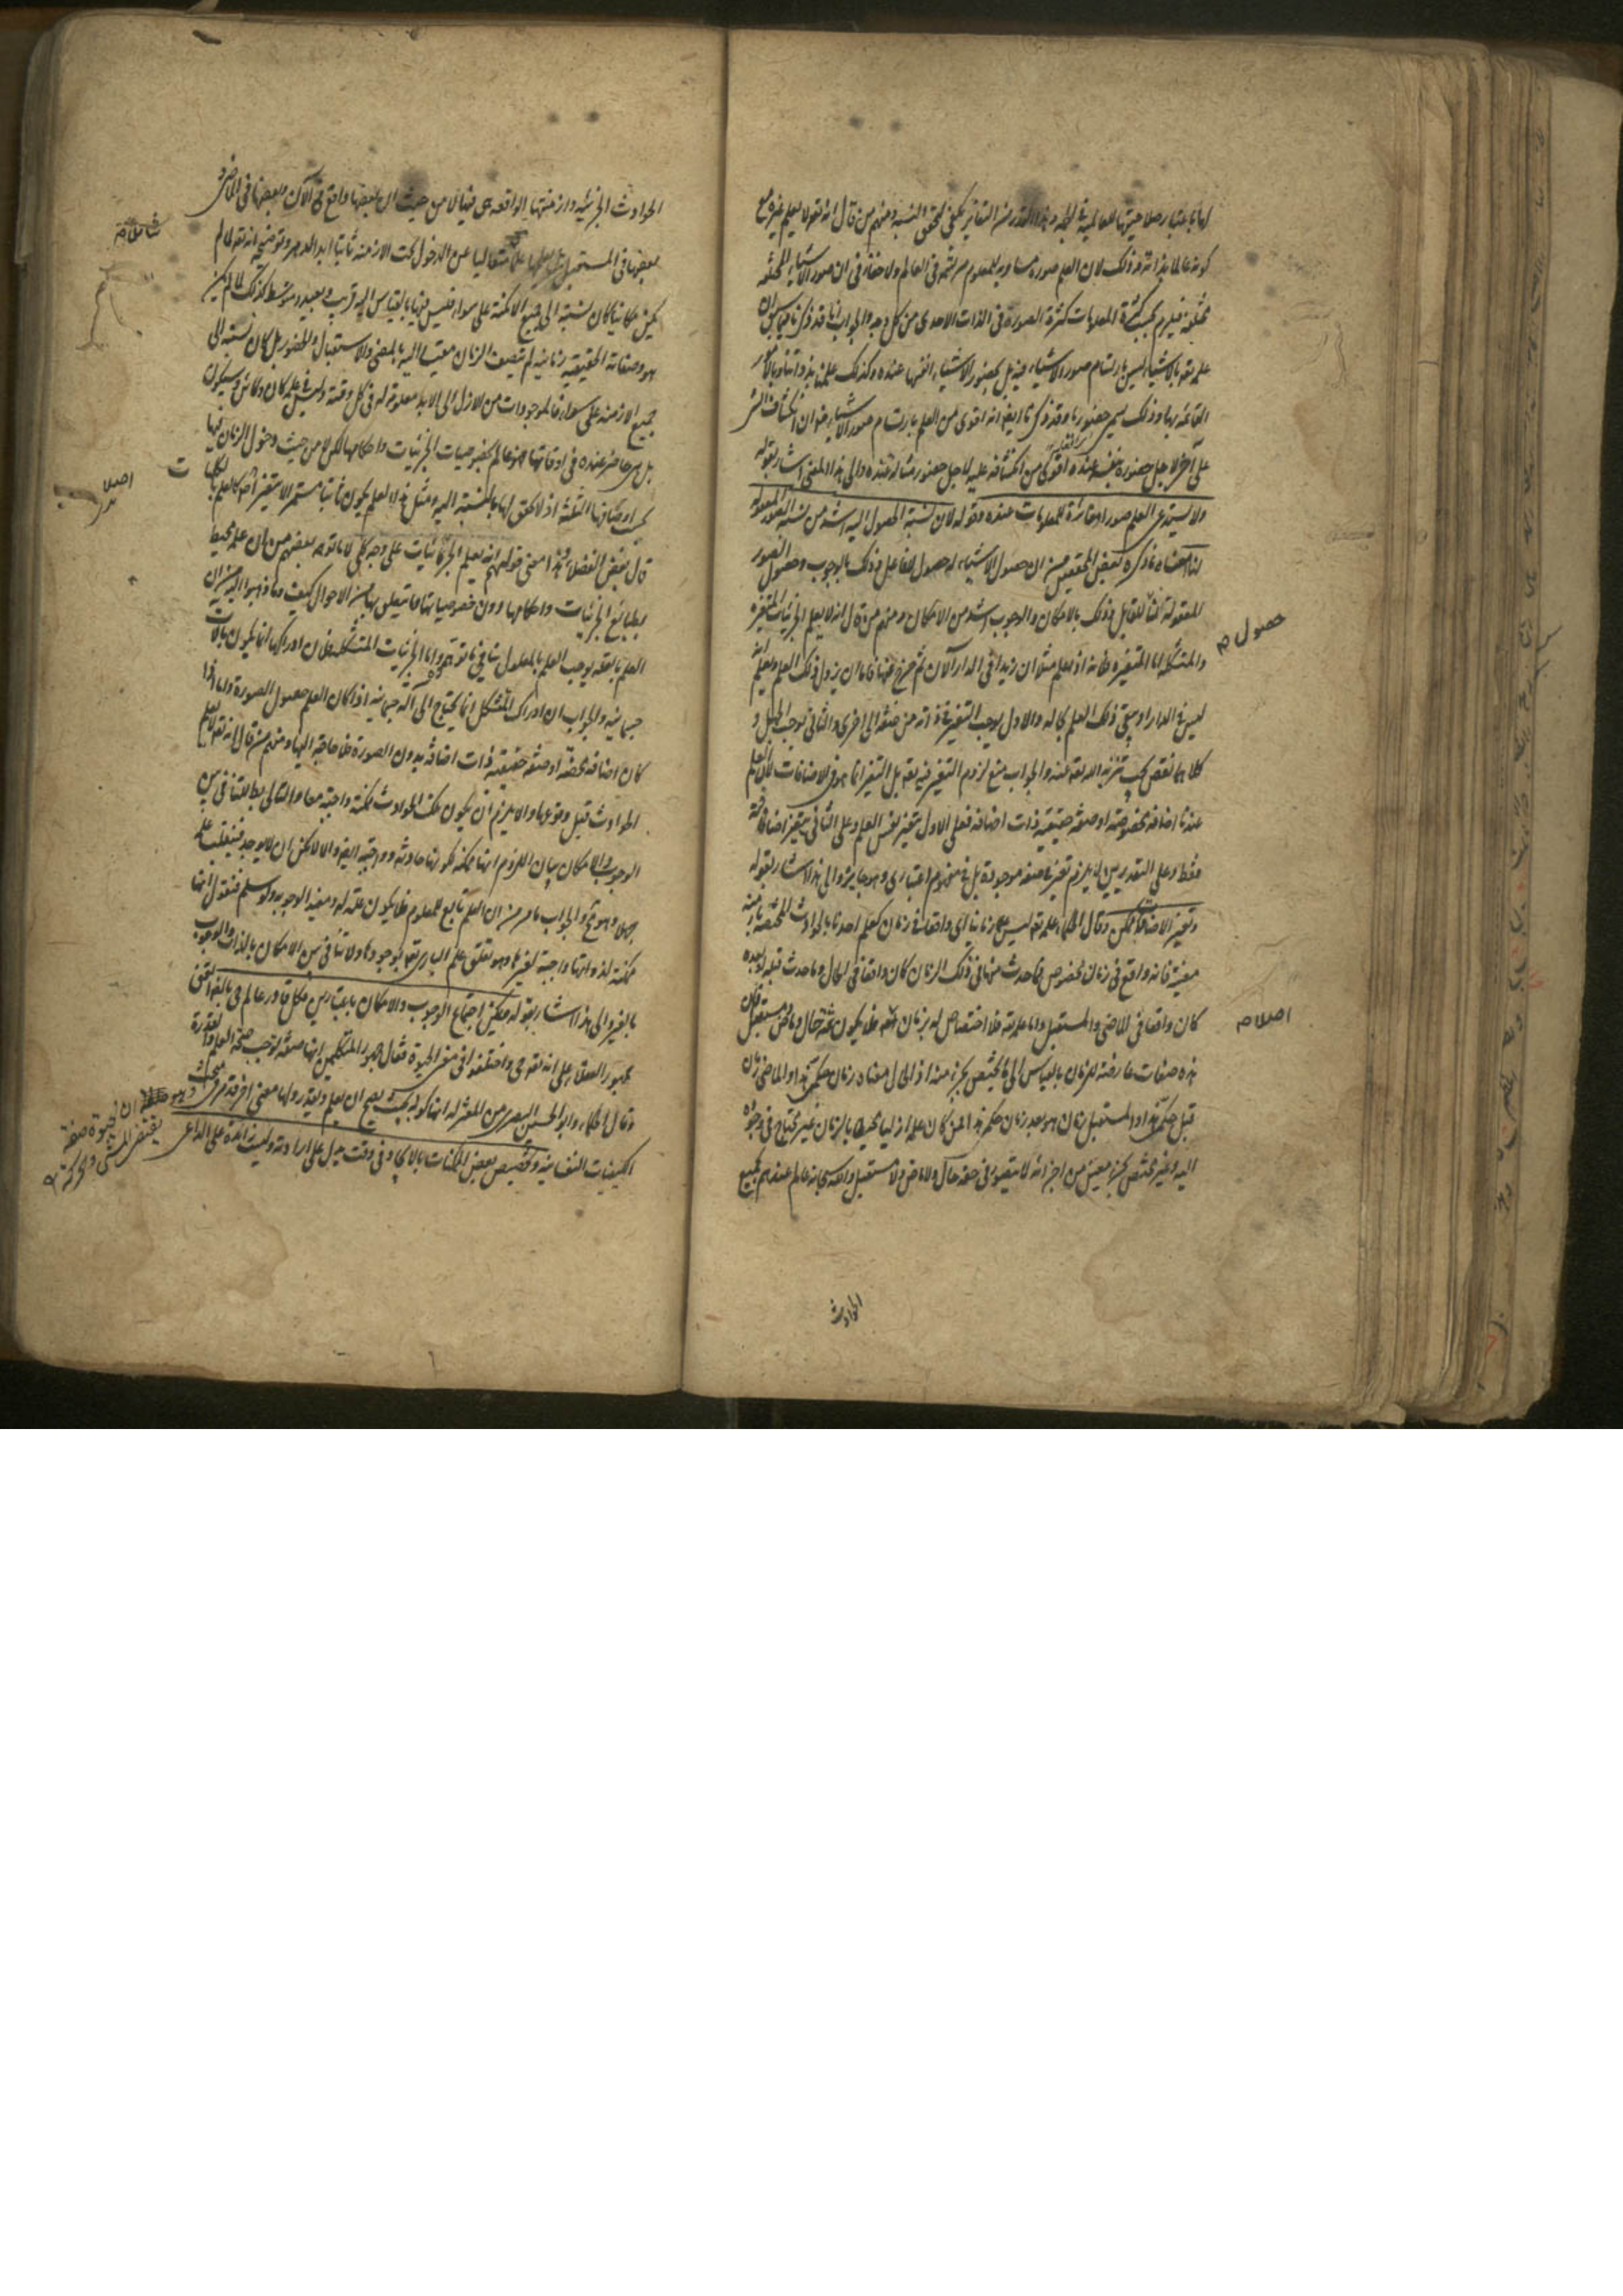 لها باعتبار صلاحيتها للعالمية في الجملة وهذا القدر من التغاير يكفي لتحقق النسبة ومنهم من قال انه تعه لا يعلم غيره مع
كونه عالما بذاته وذلك لان العلم صورة مساوية للمعلوم مرتسمة في العالم ولا خفاء في ان صور الاشياء المختلفة
مختلفة فيلزم بحسب كثرة المعلومات كثرة الصورة في الذات الاحدى من كل وجه والجواب انا قد ذكرنا فيما سبق ان
علمه تعه بالاشياء ليس بارتسام صور الاشياء فيه بل بحضور الاشياء انفسها عنده وكذلك علمنا بذواتنا وبالامور
القائمة بها وذلك يسمى حضوريا وقد ذكرنا ايضا انه اقوى من العلم بارتسام صور الاشياء ضرورة ان انكشاف الشئ
على آخر لاجل حضوره بنفسه عنده اقوى من انكشافه عليه لاجل حضور مثاله عنده والى هذا المعنى اشار بقوله
ولا يستدعى العلم صورا مغايرة للمعلومات عنده وقوله لان نسبة الحصول اليه اشد من نسبة الصور المعقولة
لنا معناه ما ذكره بعض المحققين من ان حصول الاشياء له حصول للفاعل وذلك بالوجوب وحصول الصور
المعقولة لنا للقابل وذلك بالامكان والوجوب اشد من الامكان ومنهم من قال انه لا يعلم الجزئيات المتغيرة
والمتشكلة اما المتغيرة فلانه اذا علم مثلا ان زيدا في الدار الآن ثم خرج عنها فاما ان يزول ذلك العلم ويعلم انه
ليس في الدار او يبقى ذلك العلم بحاله والاول يوجب التغير في ذاته من صفة الى اخرى والثاني يوجب الجهل و
كلاهما نقص يجب تنزيه الله تعه عنه والجواب منع لزوم التغير فيه تعه بل التغير انما هو في الاضافات لان العلم
عندنا اضافة مخصوصة او صفة حقيقية ذات اضافة فعلى الاول يتغير نفس العلم وعلى الثاني يتغير اضافاته
فقط وعلى التقديرين لا يلزم تغير في صفة موجودة بل في مفهوم اعتبارى وهو جائز والى هذا اشار بقوله
وتغير الاضافات ممكن وقال الحكماء علمه تعه ليس علما زمانيا اى واقعا في زمان كعلم احدنا بالحوادث المختصة بازمنة
معينة فانه واقع في زمان مخصوص فما حدث منها في ذلك الزمان كان واقعا في الحال وما حدث قبله او بعده
كان واقعا في الماضي والمستقبل واما علمه تعه فلا اختصاص له بزمان اصلا فلا يكون ثمه حال وماض ومستقبل فان
هذه صفات عارضة للزمان بالقياس الى ما يختص بجزء منه اذ الحال معناه زمان حكمى هذا والماضى زمان
قبل حكمى هذا والمستقبل زمان هو بعد زمان حكمى هذا فمن كان علمه ازليا محيطا بالزمان غير محتاج في وجوده
اليه وغير مختص بجزء معين من اجزائه لا يتصور في حقه حال ولا ماض ولا مستقبل والله سبحانه عالم عندهم بجميع
حصول م
اصلا م
الحوادث
الحوادث الجزئية وازمنتها الواقعة هي فيها لا من حيث ان بعضها واقع في الآن وبعضها في الماضي و
بعضها في المستقبل بل يعلمها علما متعاليا عن الدخول تحت الازمنة ثابتا ابد الدهر وتوضيحه انه تعه لما لم
يكن مكانيا كان نسبته الى جميع الامكنة على سواء فليس فيها بالقياس اليه قريب وبعيد ومتوسط كذلك لما لم يكن
هو وصفاته الحقيقية زمانية لم يتصف الزمان مقيسا اليه بالمضى والاستقبال والحضور بل كان نسبته الى
جميع الازمنة على سواء فالموجودات من الازل الى الابد معلومة له في كل وقته وليس في علمه كان وكائن وسيكون
بل هي حاضرة عنده في اوقاتها فهو عالم بخصوصيات الجزئيات واحكامها لكن لا من حيث دخول الزمان فيها
بحسب اوصافها الثلثة اذ لا تحقق لها بالنسبة اليه ومثل هذا العلم يكون ثابتا مستمرا لا يتغير اصلا كالعلم بالكليات
قال بعض الفضلاء وهذا معنى قولهم انه يعلم الجزئيات على وجه كلي لا ما توهمه بعضهم من ان علمه محيط
بطبائع الجزئيات واحكامها دون خصوصياتها وما يتعلق بها من الاحوال كيف وما ذهبوا اليه من ان
العلم بالعلة يوجب العلم بالمعلول ينافى ما توهموه واما الجزئيات المتشكلة فلان ادراكها انما يكون بآلات
جسمانية والجواب ان ادراك المتشكل انما يحتاج الى آلة جسمانية اذا كان العلم حصول الصورة واما اذا
كان اضافة محضة او صفة حقيقية ذات اضافة بدون الصورة فلا حاجة اليها ومنهم من قال انه تعه لا يعلم
الحوادث قبل وقوعها والا يلزم ان يكون تلك الحوادث ممكنة واجبة معا والتالى بط للتنافى بين
الوجوب والامكان بيان اللزوم انها ممكنة لكونها حادثة وواجبة ايضا والا لامكن ان لا يوجد فينقلب علمه
جهلا وهو مح والجواب ما مر من ان العلم تابع للمعلوم فلا يكون علة له ومفيدا لوجوبه ولو سلم فنقول انها
ممكنة لذواتها واجبة لغيرها وهو تعلق علم البارى تعه بوجودها ولا تنافى بين الامكان بالذات والوجوب
بالغير والى هذا اشار بقوله ويمكن اجتماع الوجوب والامكان باعتبارين وكل قادر عالم حي بالضرورة اتفق
جمهور العقلاء على انه تعه حي واختلفوا في معنى الحيوة فقال جمهور المتكلمين انها صفة توجب صحة العلم والقدرة
وقال الحكماء وابو الحسين البصرى من المعتزلة انها كونه بحيث يصح ان يعلم ويقدر ولها معنى آخر قد مر في مبحث
الكيفيات النفسانية وتخصيص بعض الممكنات بالايجاد في وقت يدل على ارادته وليست زائدة على الداعى
اصلا
ان الحيوة صفة
يقتضى الحس والحركة